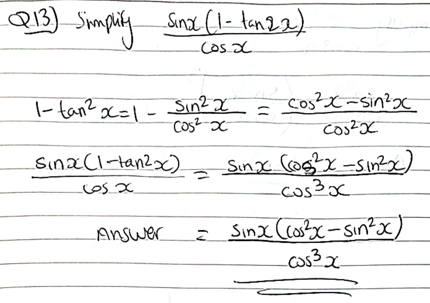 Q13) Simplify sinx(1 - tan2x) / cosx
1 - tan²x = 1 - sin2x / cos²x = cos²x - sin²x / cos²x
sinx(1 - tan2x) / cosx = sinx (cos²x - sin²x) / cos³x
Answer = sinx (cos²x - sin²x) / cos³x